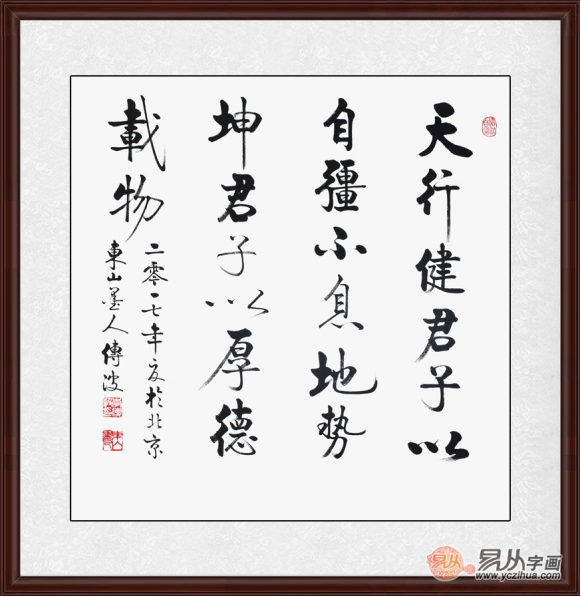 天行健君子以
自彊不息地势
坤君子以厚德
載物
二零一七年夏於北京
東山墨人傳波
易从字画
www.yczihua.com